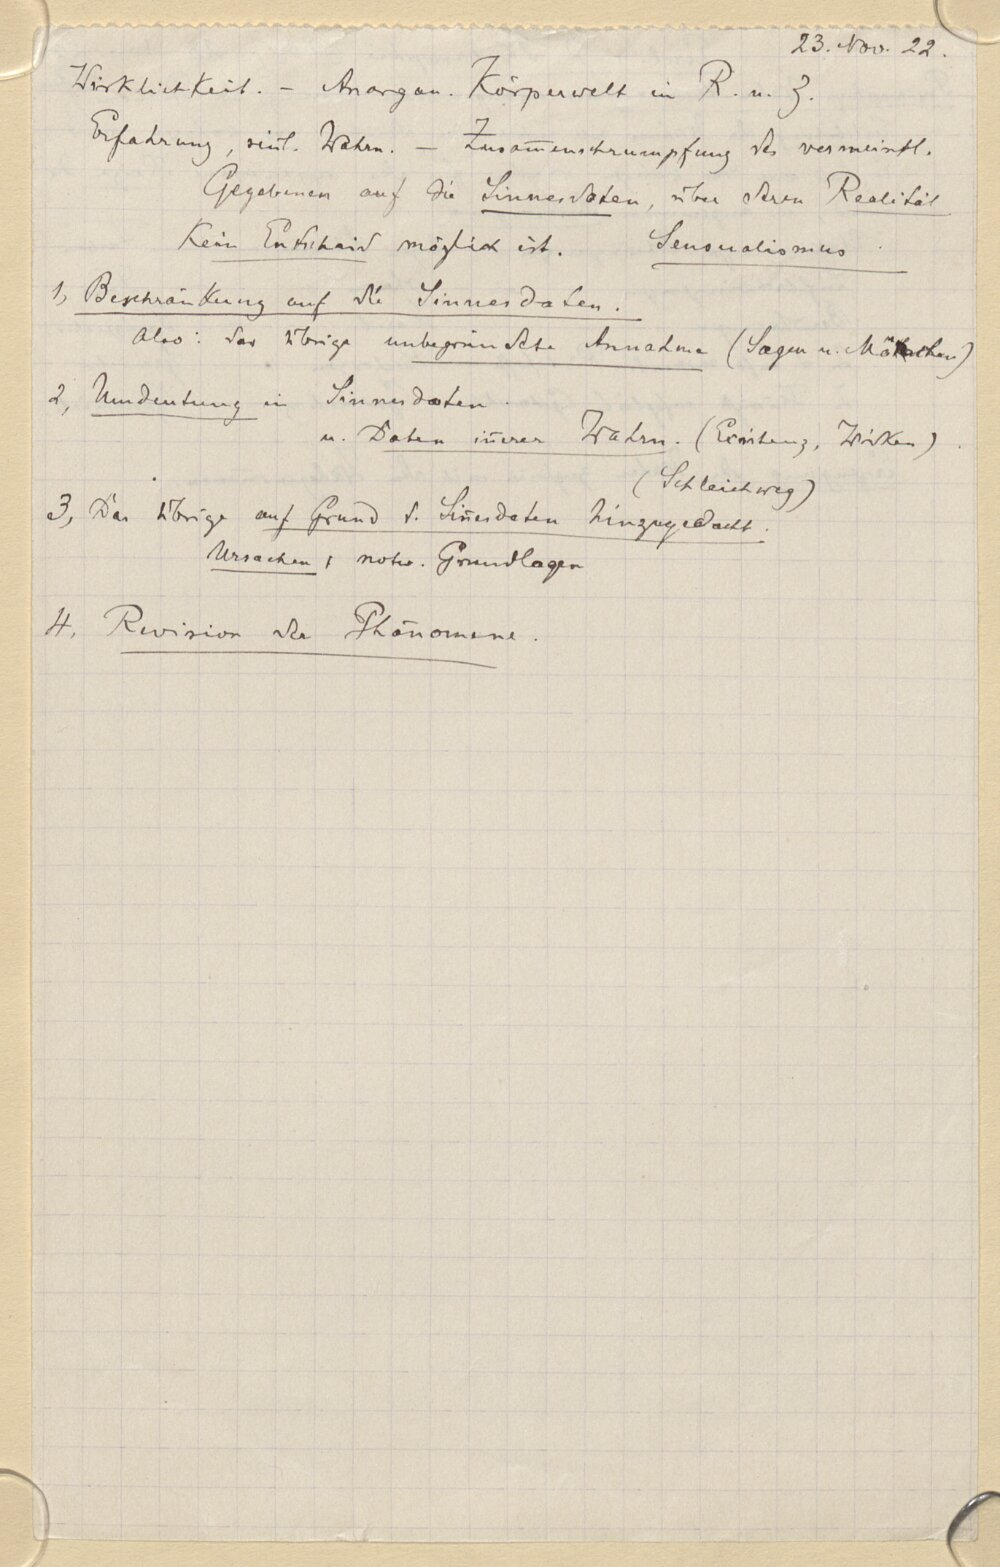 23. Nov. 22.
Wirklichkeit. – Anorgan. Körperwelt in R. u. Z.
Erfahrung, sinl. Wahrn. – Zusam̅enschrumpfung des vermeintl.
Gegebenen auf die Sinnesdaten, über deren Realität
Kein Entscheid möglich ist. Sensualismus.
1, Beschränkung auf die Sinnesdaten.
Also: das übrige unbegründete Annahme (Sagen u. Märchen)
2, Umdeutung in Sinnesdaten.
u. Daten in̅erer Wahrn. (Existenz, Wirken).
(Schleichweg)
3, Das übrige auf Grund d. Sin̅esdaten hinzugedacht.
Ursachen; notw. Grundlagen
4, Revision der Phänomene.